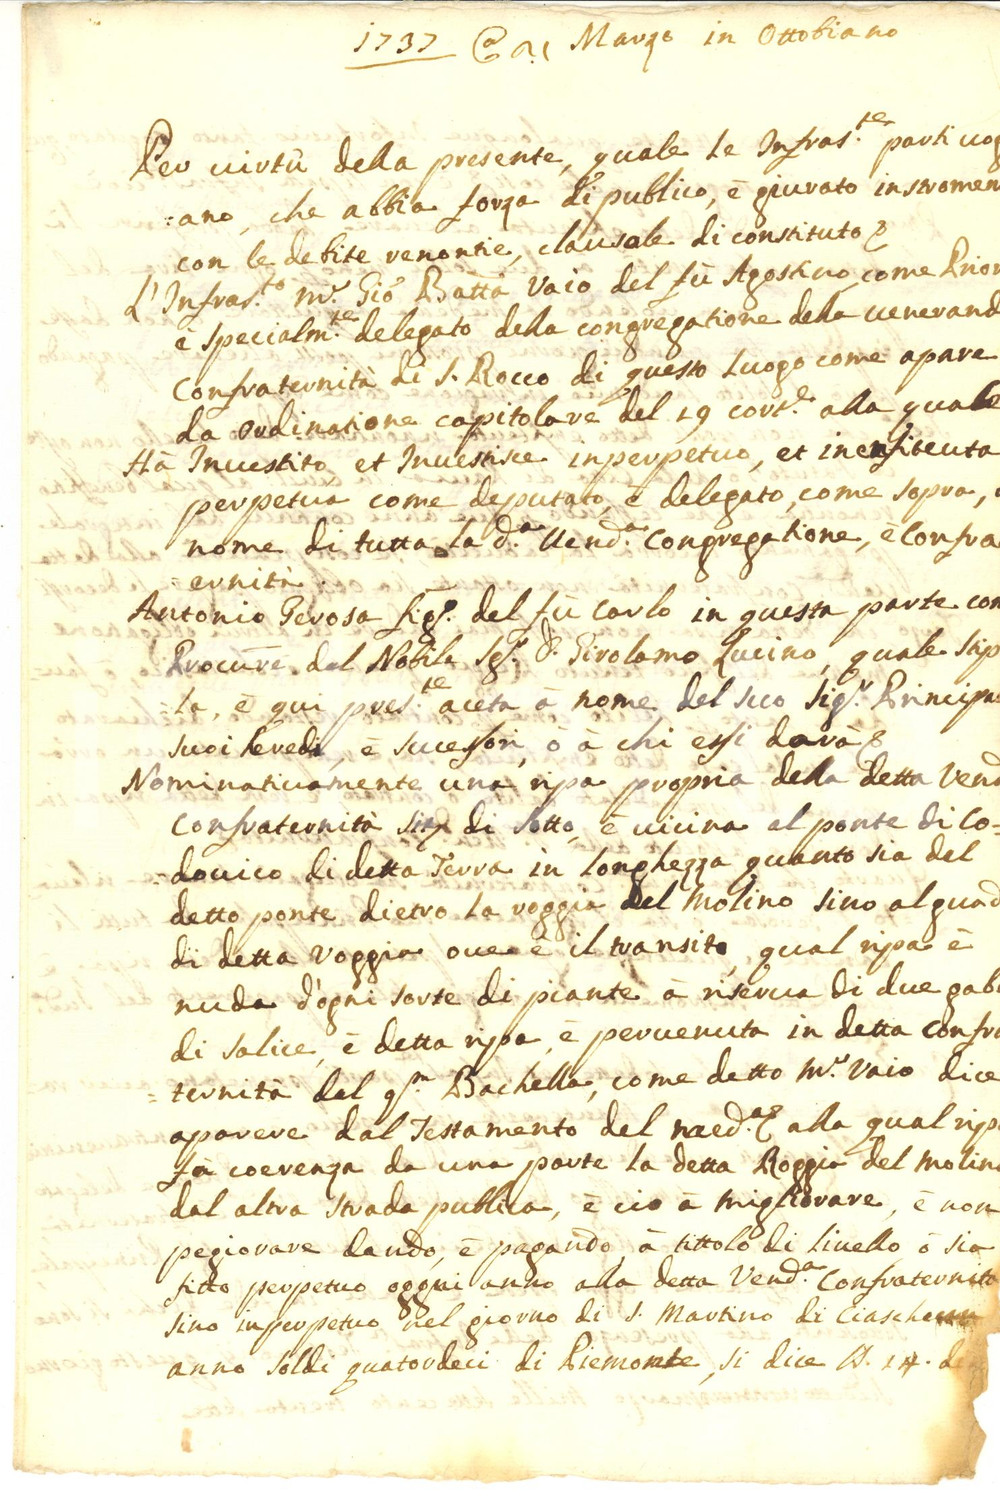 1737 Marzo in Ottobiano
Per virtù della presente, quale le Infras.te parti vog
=ano, che abbia forza di publico, è giurato instromen
con le debite renontie, clausale di constituto
L'Infras.to m.r Gio Batta Vaio del fù Agostino come Prior
è specialm.te delegato della congregatione della venerand
Confraternità di S. Rocco di questo Luogo come apare
da ordinatione capitolare del 19 cort.e alla quale
Hà Investito, et Investisce inperpetuo, et in enfiteuta
perpetua come deputato, è delegato, come sopra,
nome di tutta la d.a Vend.a Congregatione, è Confra
=ernità
Antonio Gerosa fig.o del fù Carlo in questa parte com
Procure del Nobile Sig.r d. Girolamo Lucino, quale stip
la, è qui pres.te aceta à nome del suo Sig.r Principa
suoi heredi, è sucessori, ò à chi essi darà
Nominativamente una ripa propria della detta Vend
Confraternità sita di sotto, è vicina al ponte di Co-
=dovico di detta Terra in longhezza quanto sia del
detto ponte dietro la roggia del Molino sino al guad
di detta roggia ove è il transito, qual ripa è
nuda d'ogni sorte di piante à riserva di due gab
di salice, è detta ripa, è pervenuta in detta Confra
=ternità dal q.m Bachella, come detto M.r Vaio dice
aparere dal Testamento del med.o alla qual ripa
fà coerenza da una parte la detta Roggia del Molino
dal altra strada publica, è ciò à migliorare, è non
pegiorare dando, è pagando à tittolo di livello ò sia
fitto perpetuo oggni anno alla detta Vend.a Confraternità
sino inperpetuo nel giorno di S. Martino di Ciaschedun
anno soldi quatordeci di Piemonte, si dice 14. de